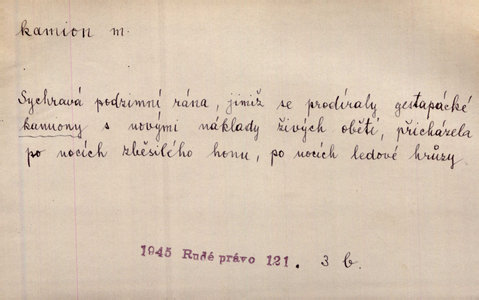 kamion m.
Sychravá podzimní rána, jimiž se prodíraly gestapácké
kamiony s novými náklady živých obětí, přicházela
po nocích zběsilého honu, po nocích ledové hrůzy.
1945 Rudé právo 121. 3 b.